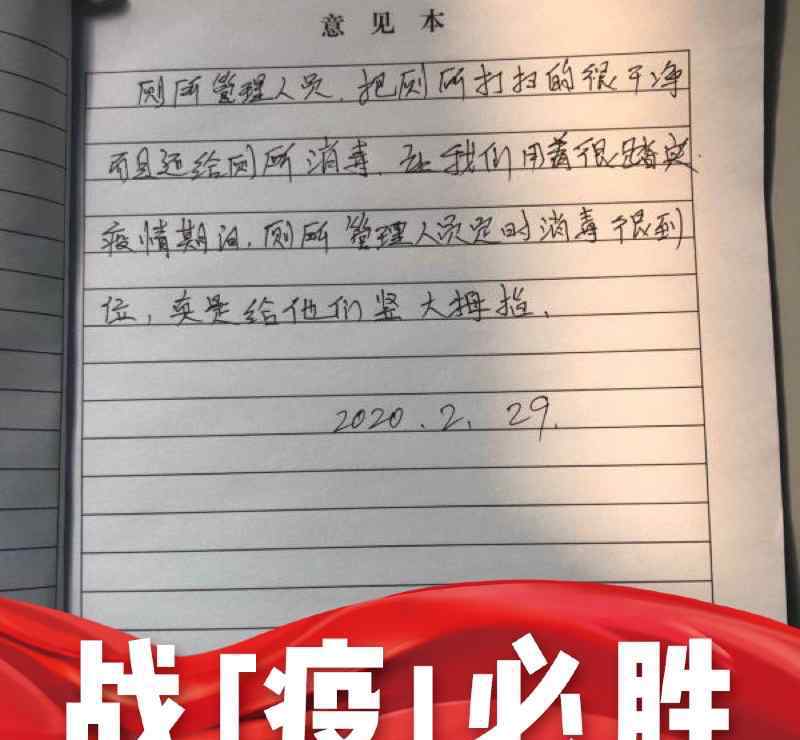 意见本
厕所管理人员.把厕所打扫的很干净
而且还给厕所消毒.让我们用着很踏实.
疫情期间.厕所管理人员定时消毒很到
位，真是给他们竖大拇指.
2020.2.29.
战「疫」必胜